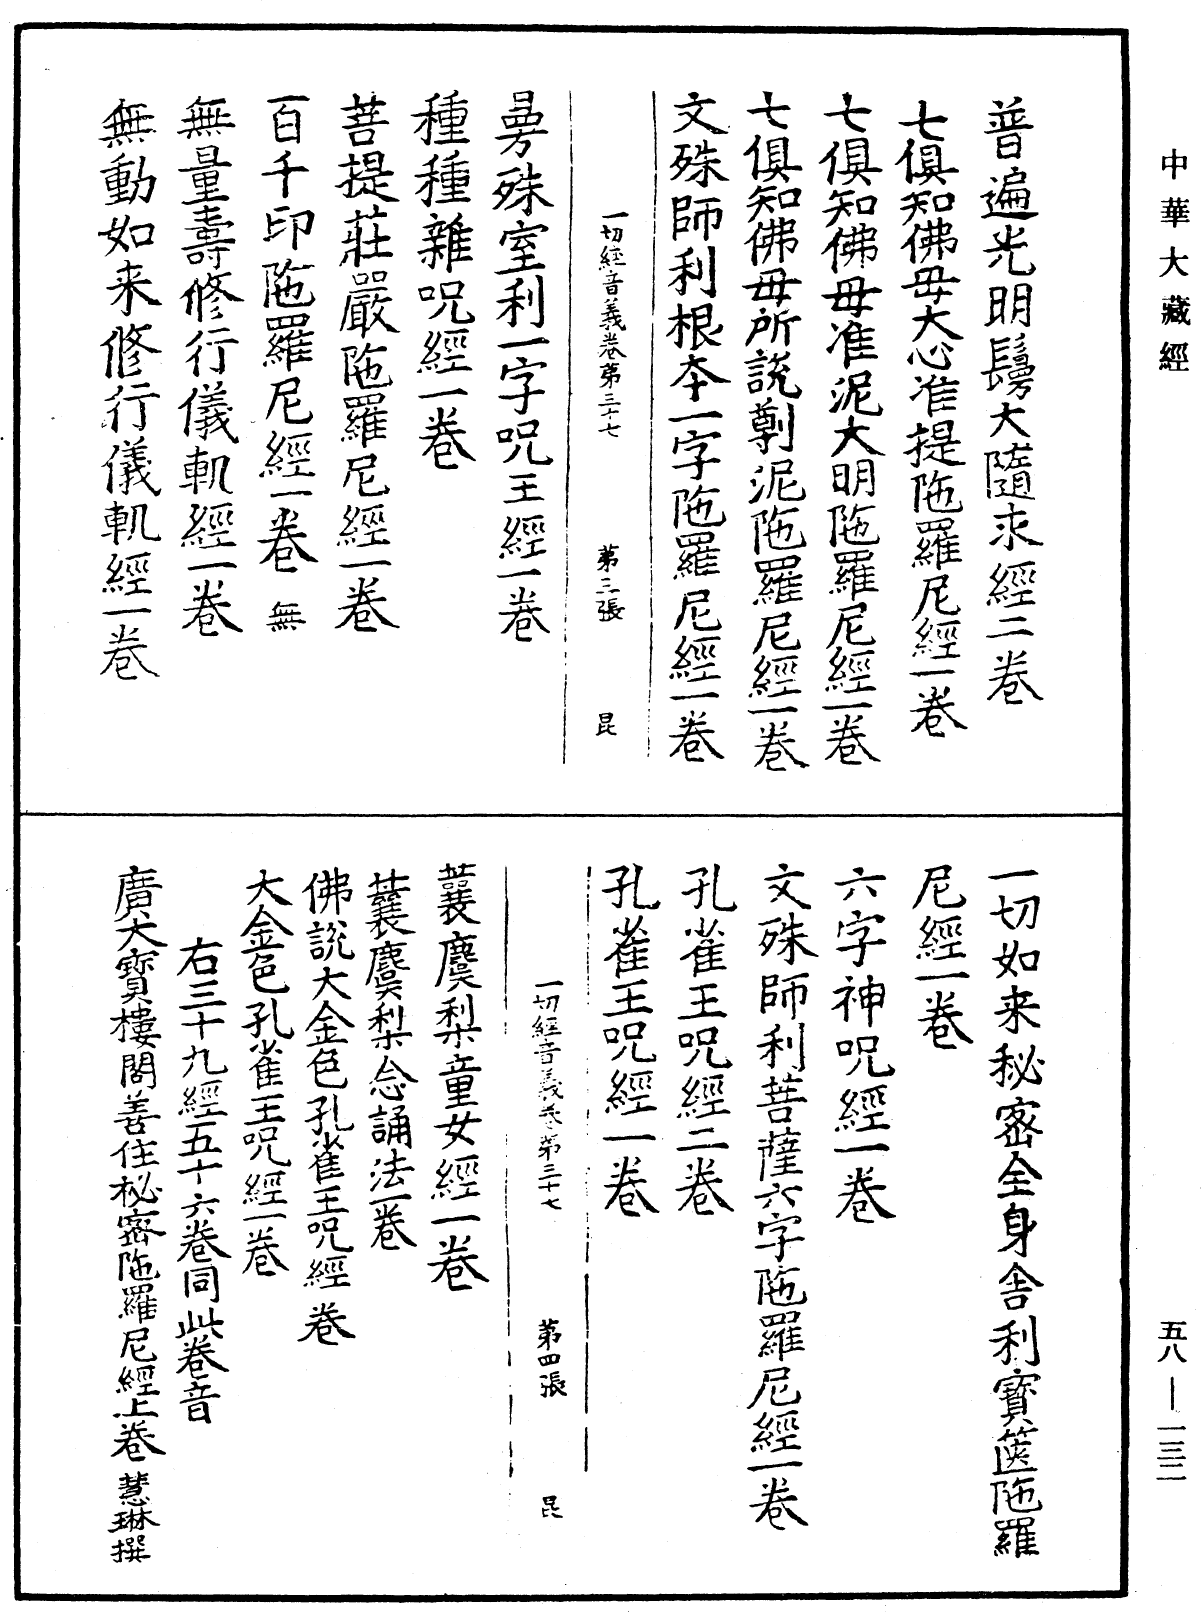 中華大藏經
普遍光明鬘大隨求經二卷
七俱知佛母大心准提陁羅尼經一卷
七俱知佛母准泥大明陁羅尼經一卷
七俱知佛母所說𠟃泥陁羅尼經一卷
文殊師利根本一字陁羅尼經一卷
一切經音義卷第三十七 第三張 昆
曼殊室利一字呪王經一卷
種種雜呪經一卷
菩提莊嚴陁羅尼經一卷
百千印陁羅尼經一卷 無
無量壽修行儀軌經一卷
無動如来修行儀軌經一卷
一切如来秘密全身舍利寶篋陁羅
尼經一卷
六字神呪經一卷
文殊師利菩薩六字陁羅尼經一卷
孔雀王呪經二卷
孔雀王呪經一卷
一切經音義卷第三十七 第四張 昆
蘘麌梨童女經一卷
蘘麌梨念誦法一卷
佛說大金色孔雀王呪經 卷
大金色孔雀王呪經一卷
右三十九經五十六卷同此卷音
廣大寶樓閣善住秘密陁羅尼經上卷 慧琳撰
五八—一三二